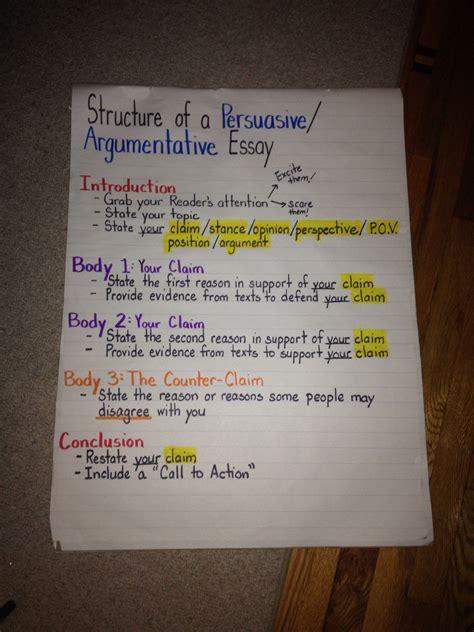 Structure of a Persuasive/
Argumentative Essay
Excite
them!
Introduction
- Grab your Reader's attention → scare
them!
- State your topic
- State your claim/stance/opinion/perspective/P.O.V.
position/argument
Body 1: Your Claim
- State the first reason in support of your claim
- Provide evidence from texts to defend your claim
Body 2: Your Claim
- State the second reason in support of your claim
- Provide evidence from texts to support your claim
Body 3: The Counter-Claim
- State the reason or reasons some people may
disagree with you
Conclusion
- Restate your claim
- Include a "Call to Action"